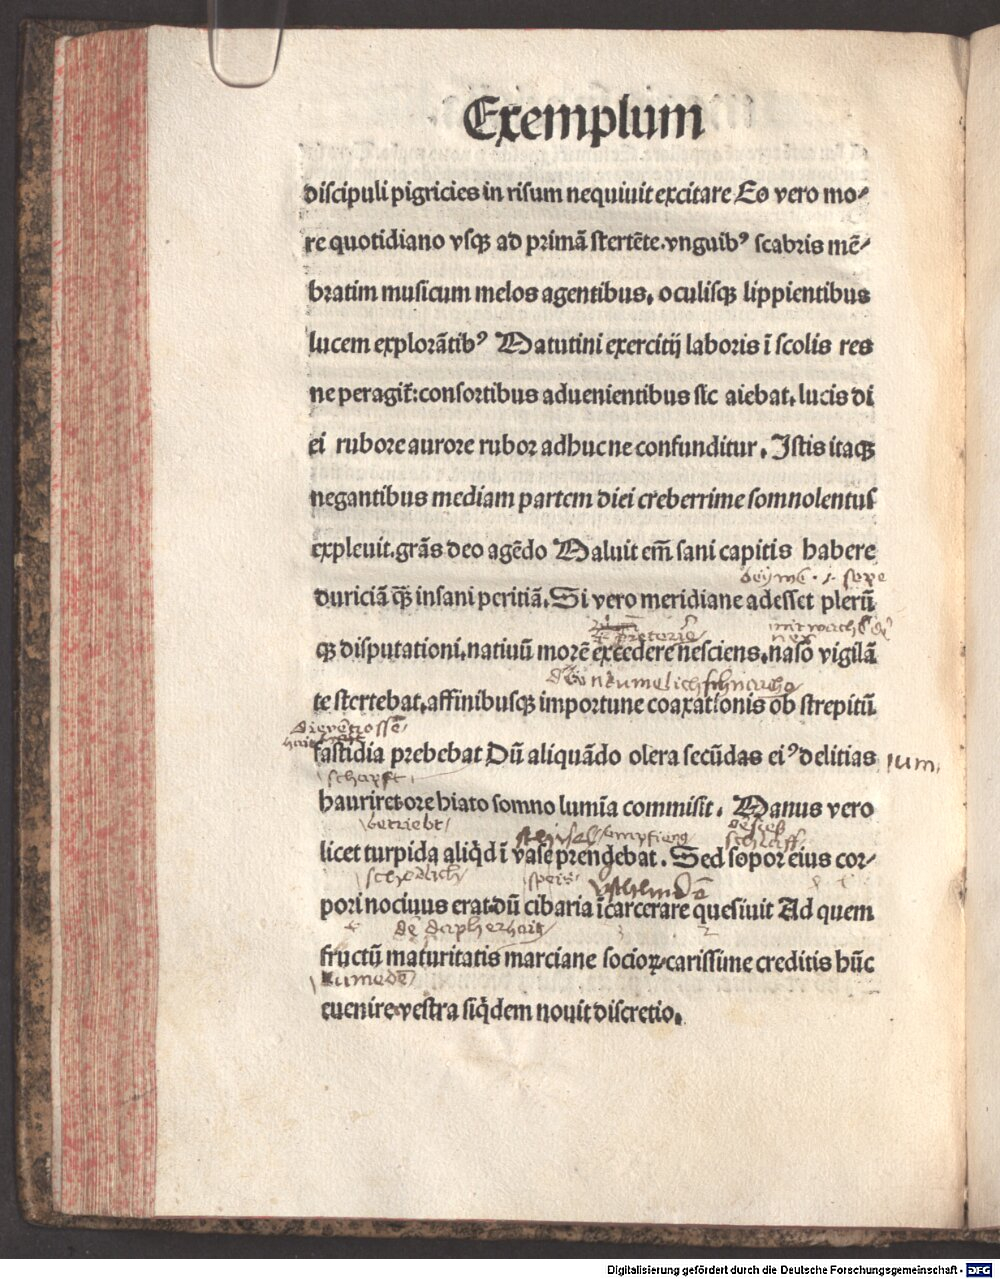 Exemplum
discipuli pigricies in risum nequiuit excitare Eo vero mo⸗
re quotidiano vsqȝ ad primā stertēte.vnguibꝰ scabris mē⸗
bratim musicum melos agentibus. oculisqȝ lippientibus
lucem explorātibꝰ Matutini exercitij laboris ī scolis res
ne peragit̄:consortibus aduenientibus sic aiebat. lucis di
ei rubore aurore rubor adhuc ne confunditur. Istis itaqȝ
negantibus mediam partem diei creberrime somnolentus
expleuit.grās deo agēdo Maluit em̄ sani capitis habere
duriciā qȝ̄ insani peritiā. Si vero meridiane adesset plerū
qȝ disputationi.natiuū morē excedere nesciens.naso vigilā
te stertebat.affinibusqȝ importune coaxationis ob strepitū
fastidia prebebat Dū aliquādo olera secūdas eiꝰ delitias
schapft
hauriret.ore hiato somno lumīa commisit. Manus vero
betriebt empfieng
licet turpida aliq̄d ī vase prendebat. Sed sopor eius cor⸗
schedlich speis
pori nociuus erat.dū cibaria īcarcerare quesiuit Ad quem
fructū maturitatis marciane socioꝝ.carissime creditis hūc
euenire.vestra siq̄dem nouit discretio.
Digitalisierung gefördert durch die Deutsche Forschungsgemeinschaft - DFG